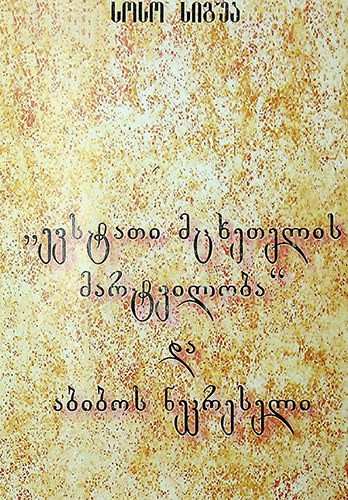 სოსო სიგუა
„ევსტათი მცხეთელის
მარტვილობა“
და
აბიბოს ნეკრესელი